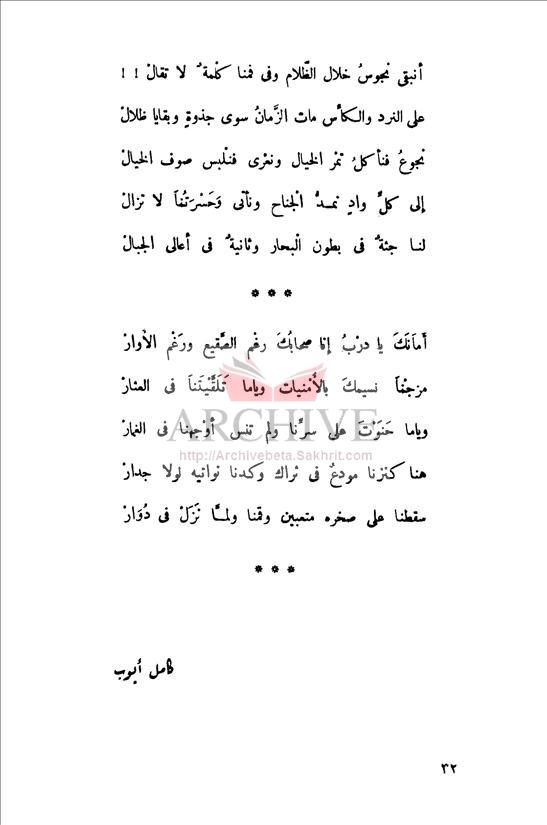 أنبقى نجوسُ خلال الظّلام وفى فمنا كلْمة ٌ لا تقالْ ! !
على النرد والكأس مات الزَّمانُ سوى جذوةٍ وبقايا ظلالْ
نجوعُ فنأكلُ تمْر الخيال ونعْرى فنلْبس صوف الخيالْ
إلى كلِّ وادٍ نمـدُّ الْجناح ونأبى وَحَسْرَتُنا لا تزالْ
لنـا جثة ٌ فى بطون الْبحار وثانية ٌ فى أعالى الجبالْ
* * *
أمانَكَ يا درْبُ إنا صحابُكَ رغْم الصَّقيع ورَغْم الأوارْ
مزجْنا نسيمكَ بالأمْنيات وياما تَلَقَّيْتَنا فى العثارْ
وياما حَنَوْتَ على سرِّنا ولم تنس أوْجهنا فى الغمارْ
هنا كنزنا مودعٌ فى ثراك وكدنا نوانيه لولا جدارْ
سقطنا على صخره متعبين وقمنا ولمـَّا نَزَلْ فى دُوَارْ
* * *
كامل أيوب
٣٢
ARCHIVE
http://Archivebeta.Sakhrit.com